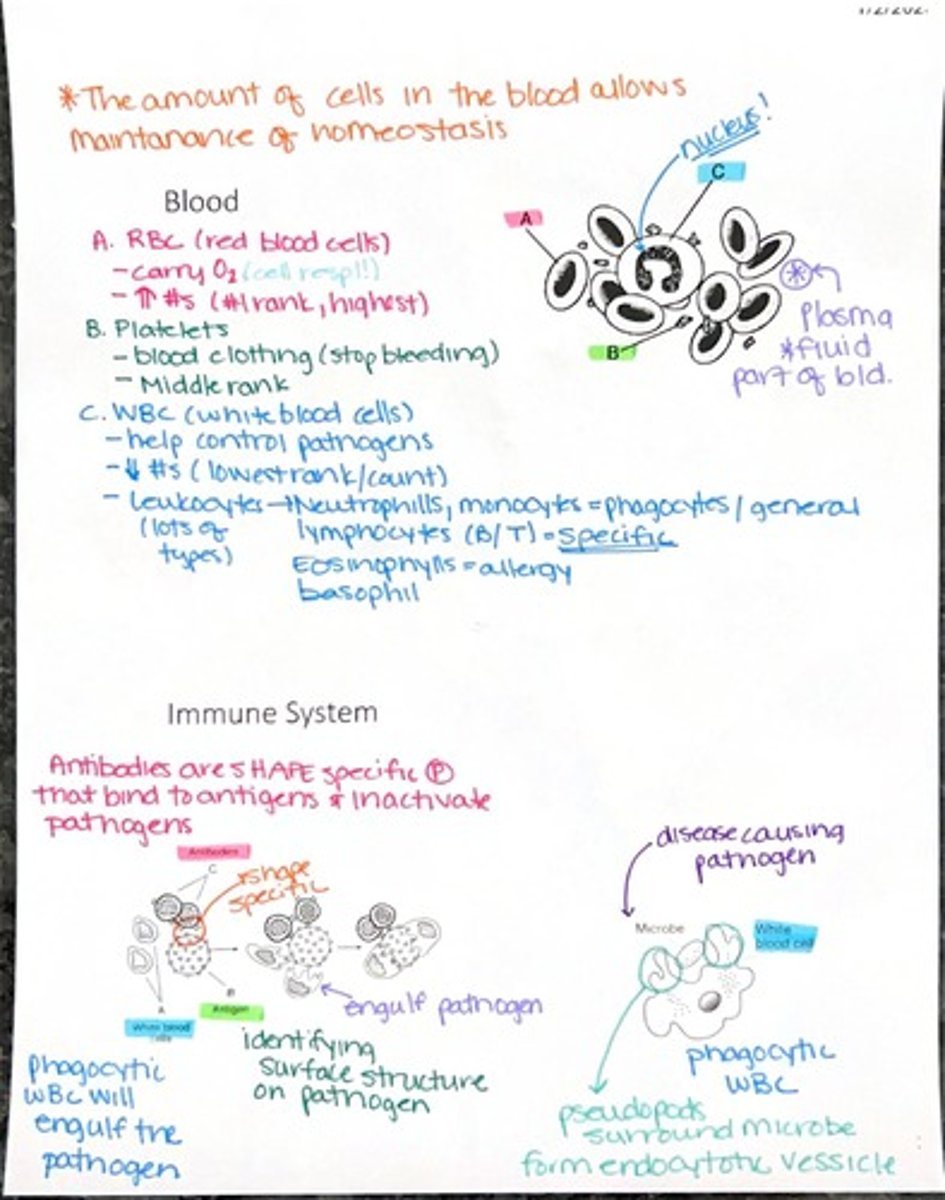 *The amount of cells in the blood allows
maintanance of homeostasis
nucleus!
C
A
Blood
A. RBC (red blood cells)
- carry O₂ (cell resp!!)
- ↑ #s (#1 rank, highest)
B. Platelets
- blood clothing (stop bleeding)
- Middle rank
B
* Plasma
*fluid
part of bld.
C. WBC (white blood cells)
- help control pathogens
- ↓ #s (lowest rank/count)
- Leukocytes → Neutrophills, monocytes = phagocytes / general
(lots of lymphocytes (B/T) = Specific
types) Eosinophylls = allergy
basophil
Immune System
Antibodies are SHAPE specific Ⓟ
that bind to antigens & inactivate
pathogens
Antibodies
C
*shape
specific
A
B
White blood
cells
Antigen
engulf pathogen
identifying
surface structure
on pathogen
Phagocytic
WBC will
engulf the
pathogen
disease causing
pathogen
Microbe
White
blood cell
phagocytic
WBC
pseudopods
surround microbe
form endocytotic vessicle